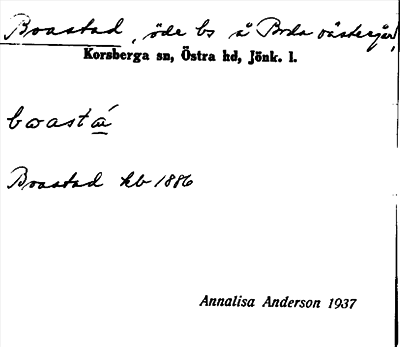 Boastad, öde bs å Broda västergård,
Korsberga sn, Östra hd, Jönk. l.
bωastá̱
Boastad kb 1886
Annalisa Anderson 1937